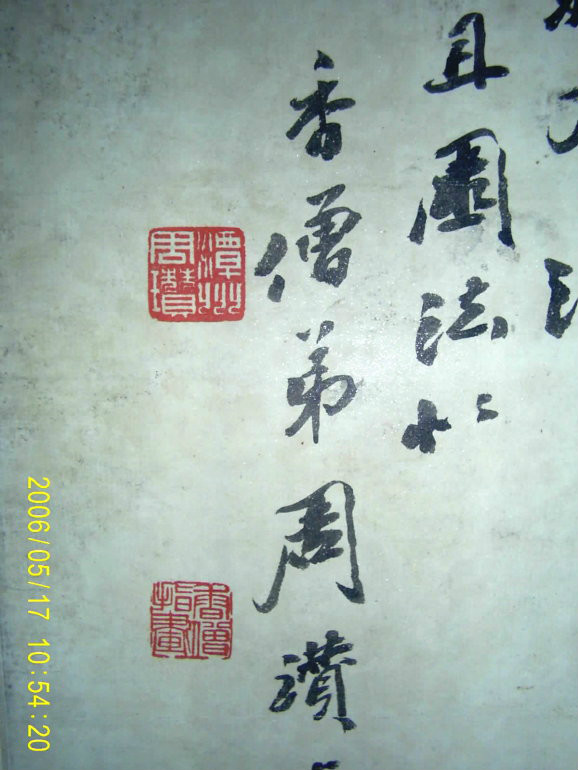 且圖法
香僧弟周瓚
潭州周瓚
香僧指畫
2006/05/17 10:54:20